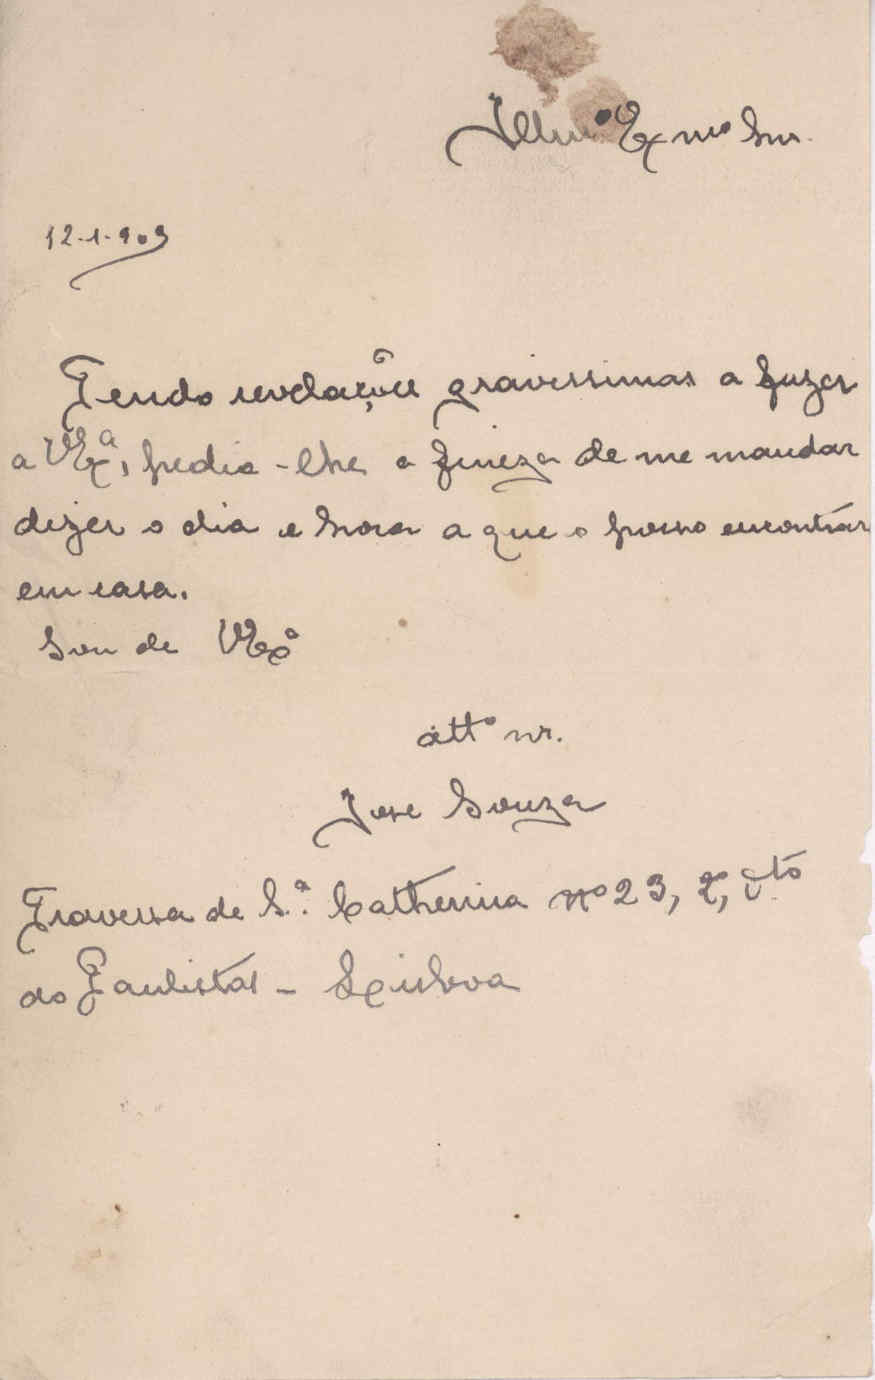 Illmº Exmº Snr.
12-1-909
Tendo revelações gravissimas a fazer
a VExª, pedia-lhe a fineza de me mandar
dizer o dia e hora a que o posso encontrar
em casa.
Sou de VExª
attº vr.
José Souza
Travessa de S.ta Catherina nº 23, 2º,
ao Paulistas - Lisboa